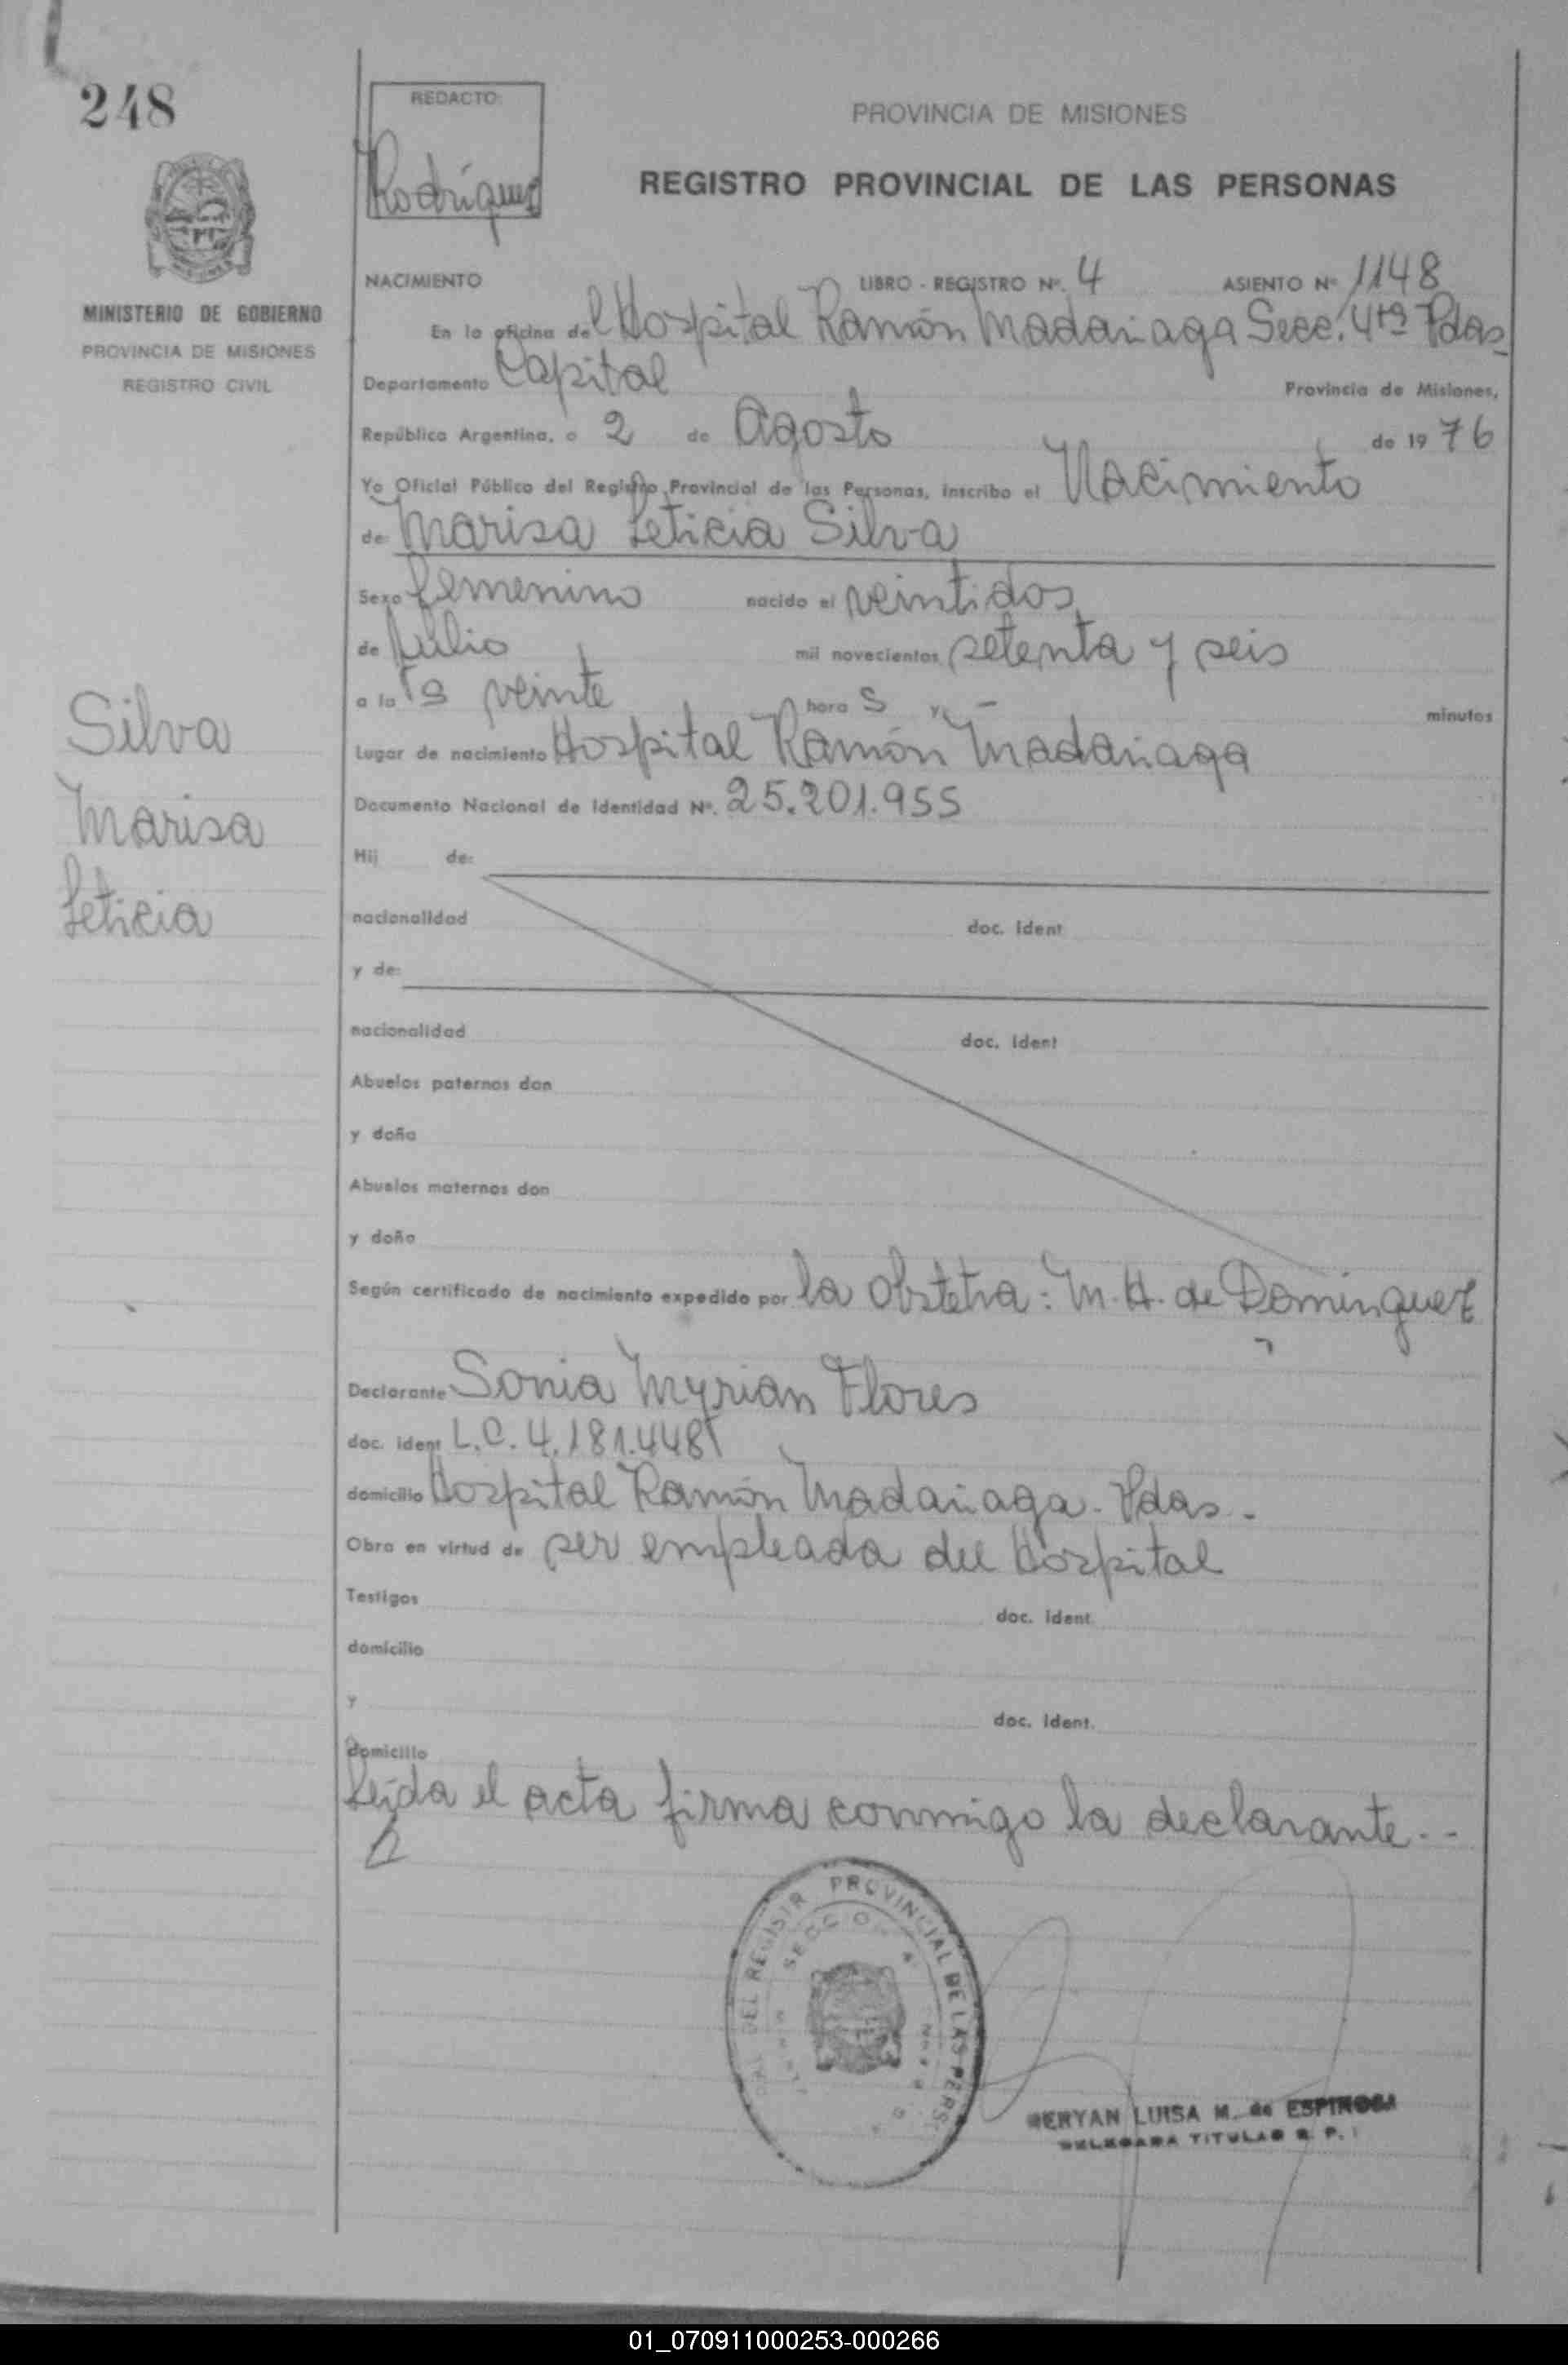 248
REDACTO:
Rodríguez
PROVINCIA DE MISIONES
REGISTRO PROVINCIAL DE LAS PERSONAS
MINISTERIO DE GOBIERNO
PROVINCIA DE MISIONES
REGISTRO CIVIL
NACIMIENTO LIBRO - REGISTRO Nº. 4 ASIENTO Nº 1148
En la oficina del Hospital Ramón Madariaga Secc. 4ta Pdas.
Departamento Capital Provincia de Misiones,
República Argentina, a 2 de Agosto de 1976
Yo Oficial Público del Registro Provincial de las Personas, inscribo el Nacimiento
de: Marisa Leticia Silva
Sexo femenino nacido el veintidos
de Julio mil novecientos setenta y seis
a las veinte horas y — minutos
Lugar de nacimiento Hospital Ramón Madariaga
Documento Nacional de Identidad Nº. 25.201.955
Silva
Marisa
Leticia
Hij de:
nacionalidad doc. Ident
y de:
nacionalidad doc. Ident
Abuelos paternos don
y doña
Abuelos maternos don
y doña
Según certificado de nacimiento expedido por la Obstetra: M. H. de Dominguez
Declarante Sonia Myrian Flores
doc. Ident L.C. 4.181.448
domicilio Hospital Ramón Madariaga - Pdas.-
Obra en virtud de ser empleada del Hospital
Testigos doc. Ident.
domicilio
y doc. Ident.
domicilio
Leída el acta firma conmigo la declarante.--
DEL REGISTR PROVINCIAL DE LAS PERS
SECCION 4
LUISA M. de ESPINOSA
TITULAR R. P.
01_070911000253-000266